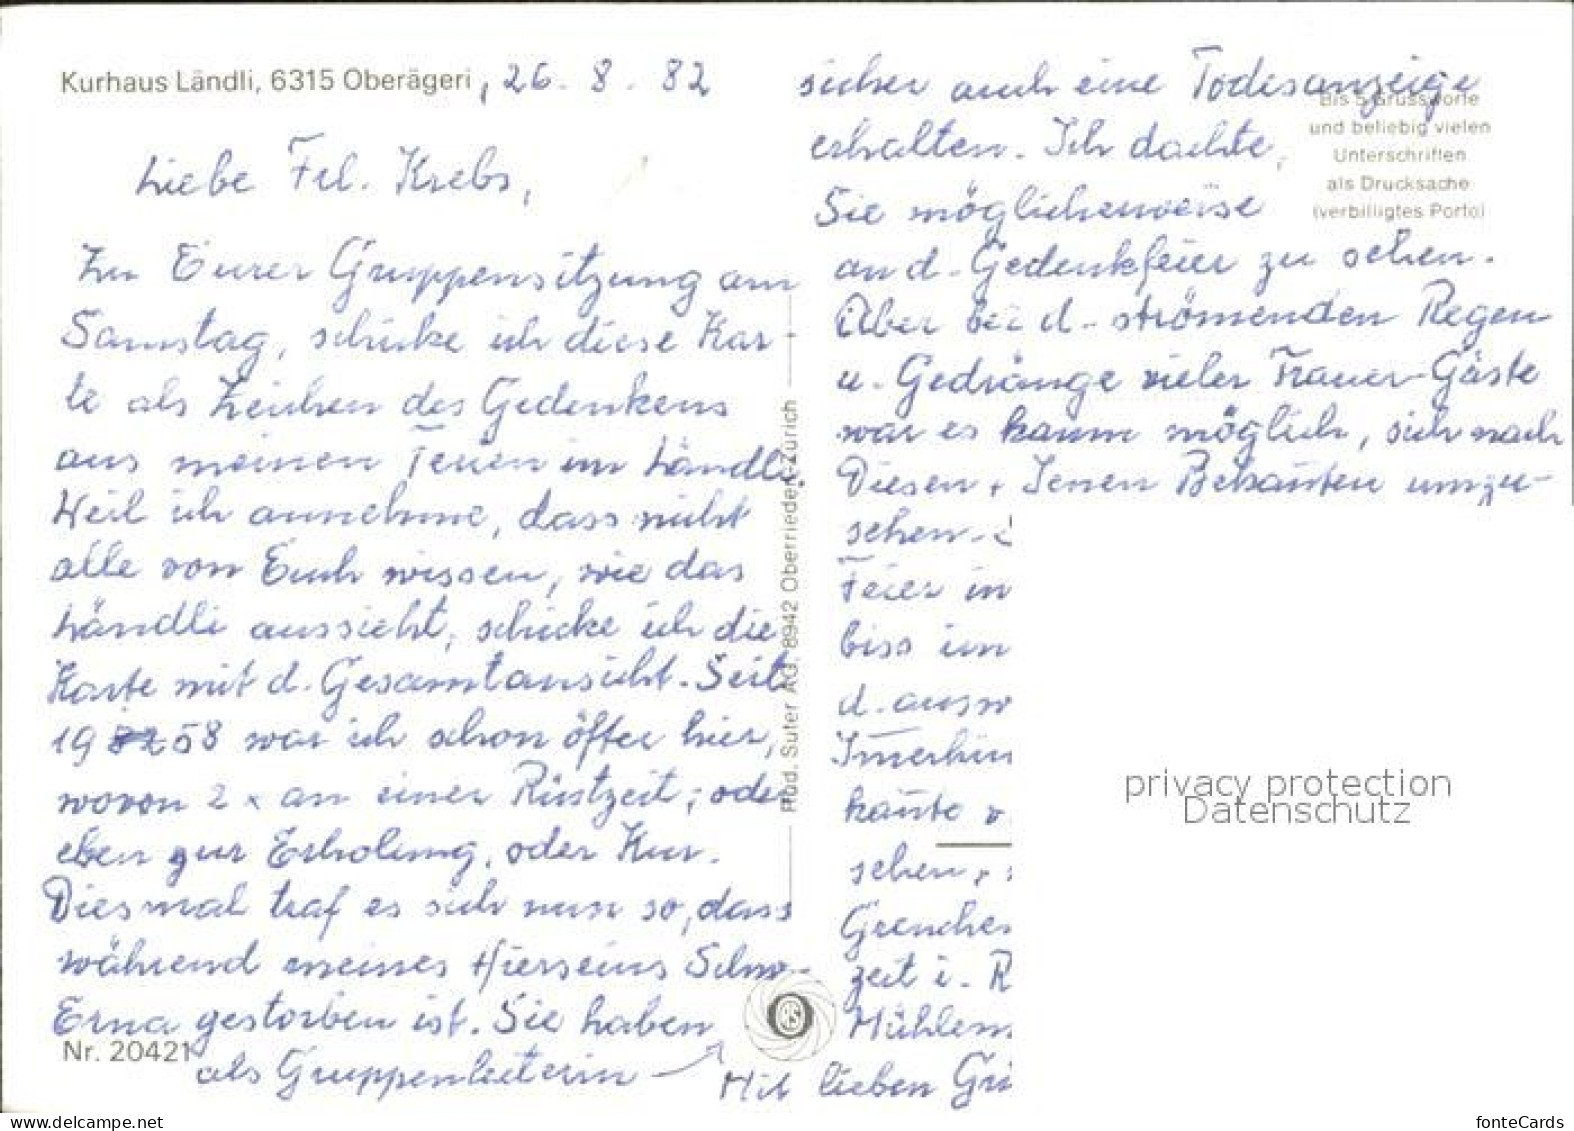 Kurhaus Ländli, 6315 Oberägeri, 26. 8. 82
Liebe Frl. Krebs,
Zu Eurer Gruppensitzung am
Samstag, schicke ich diese Kar-
te als Zeichen des Gedenkens
aus meinen Ferien im Ländli.
Weil ich annehme, dass nicht
alle von Euch wissen, wie das
Ländli aussieht, schicke ich die
Karte mit d. Gesamtansicht. Seit
1958 war ich schon öfter hier,
wovon 2 x an einer Rüstzeit, oder
eben zur Erholung, oder Kur.
Diesmal traf es sich nun so, dass
während meines Hierseins Schw.
Erna gestorben ist. Sie haben
als Gruppenleiterin
Nr. 20421
Rud. Suter AG, 8942 Oberrieden-Zürich
RS
sicher auch eine Todesanzeige
erhalten. Ich dachte,
Sie möglicherweise
an d. Gedenkfeier zu sehen.
Aber bei d. strömenden Regen
u. Gedränge vieler Trauer-Gäste
war es kaum möglich, sich nach
Diesen + Jenen Bekannten umzu-
sehen.
Feier in
biss im
d. ausw
Immerhin
kannte
sehen,
Grenchen
zeit i. R
Mühlem
Mit lieben Grü
Bis 5 Grussworte
und beliebig vielen
Unterschriften
als Drucksache
(verbilligtes Porto)
privacy protection
Datenschutz
fonteCards
www.delcampe.net